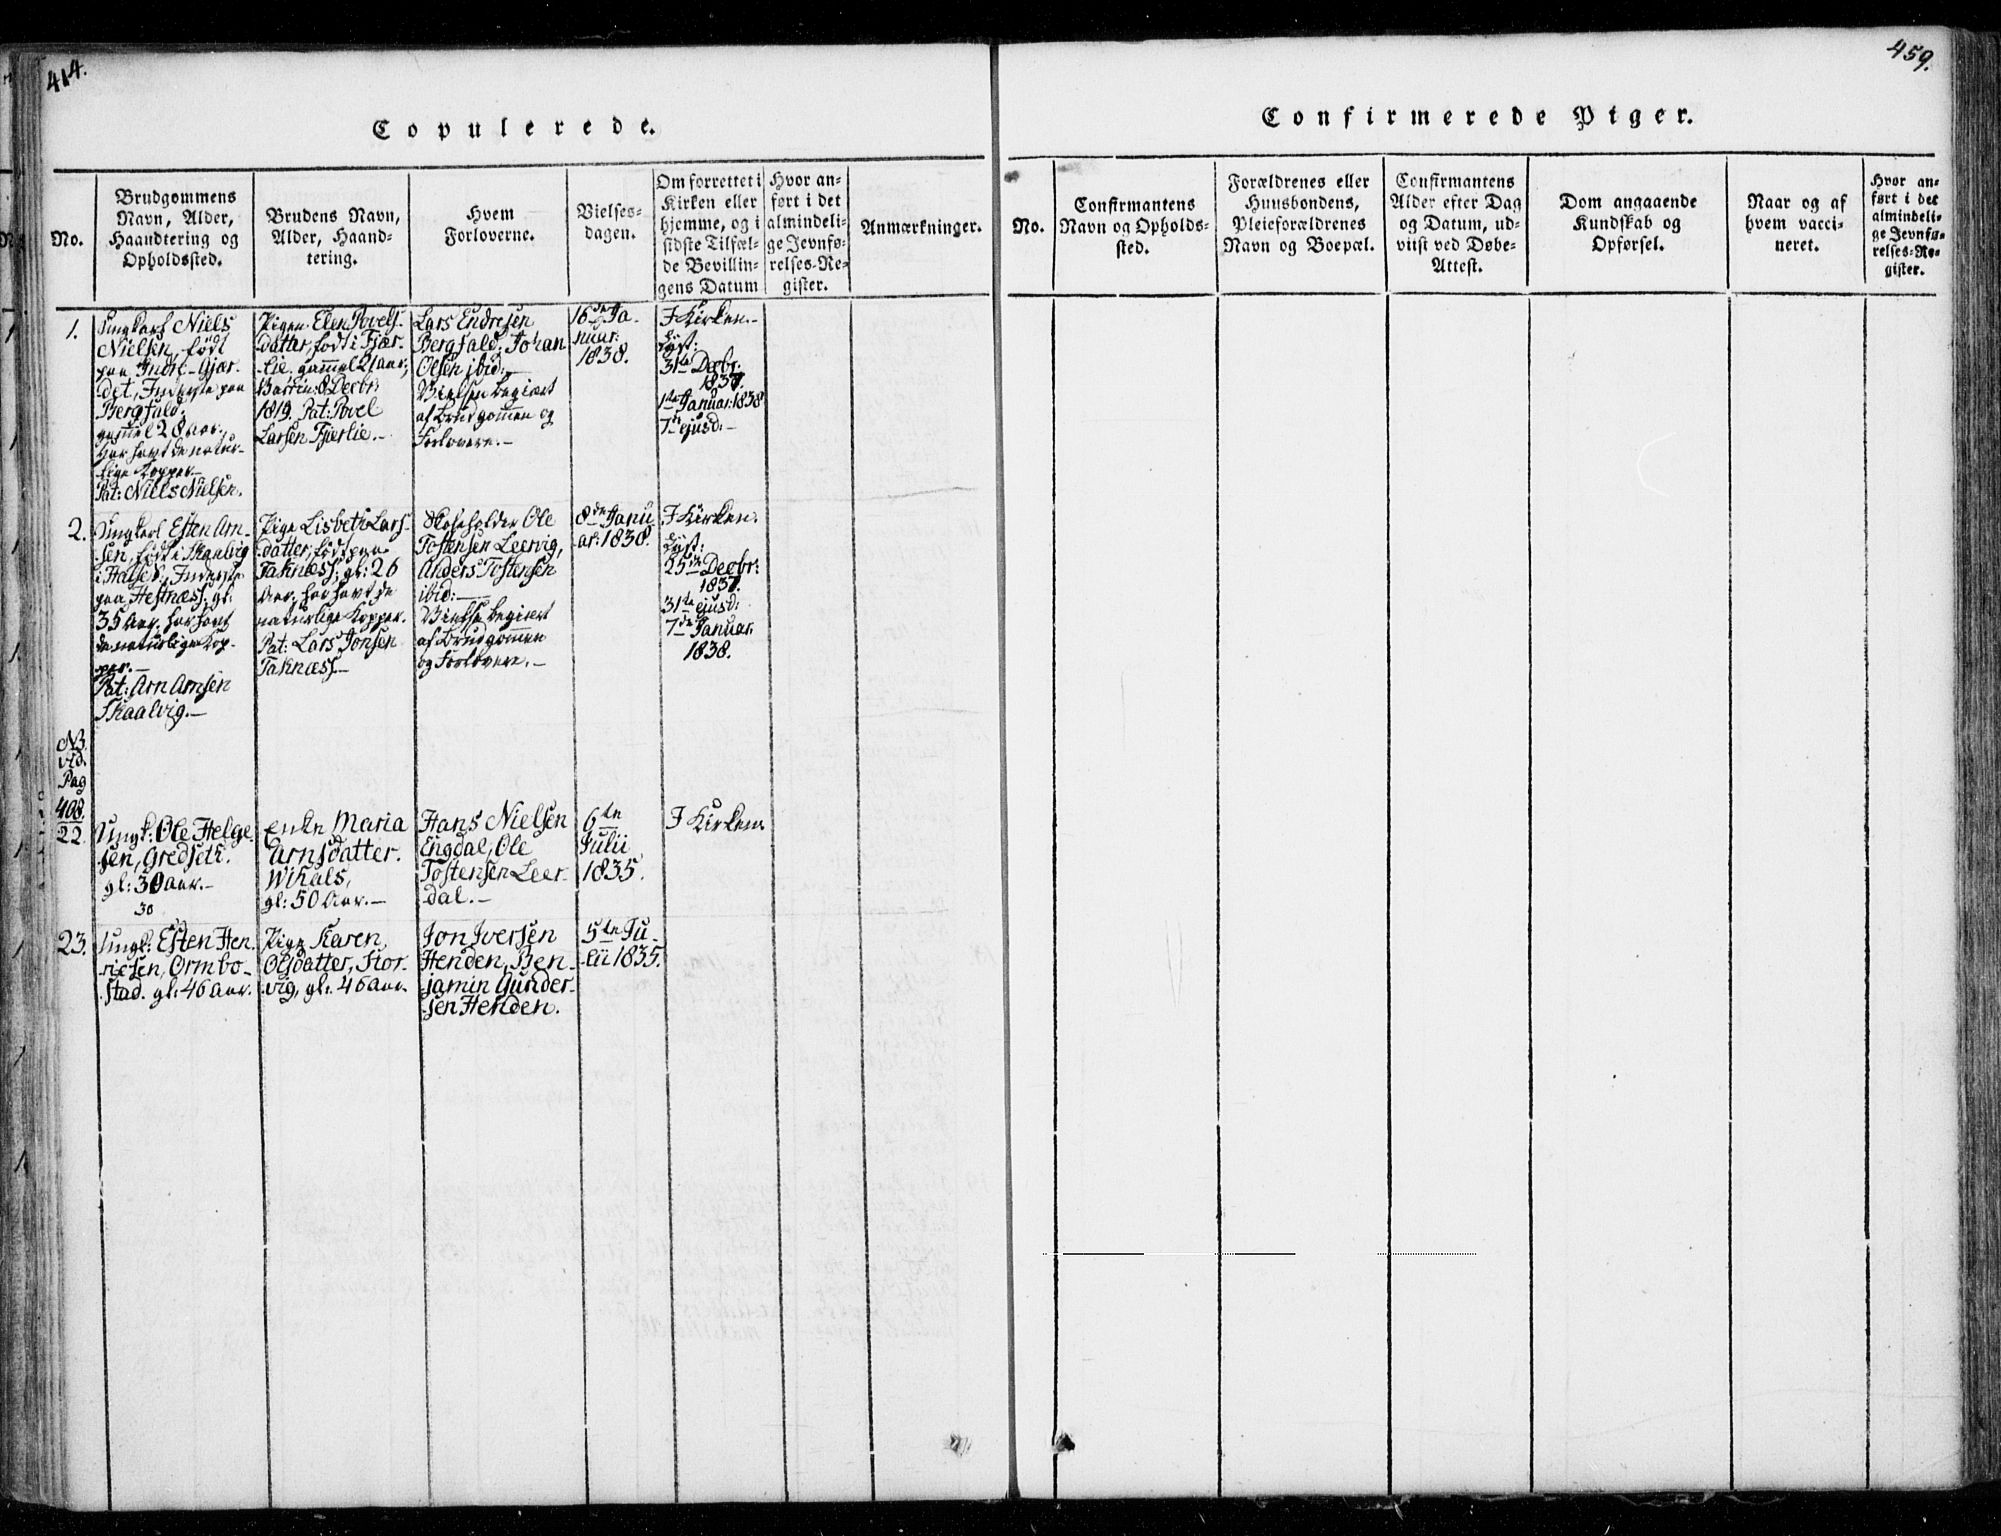 414.
Copulerede.
No.
Brudgommens
Navn, Alder,
Haandtering og
Opholdssted.
Brudens Navn,
Alder, Haand-
tering.
Hvem
Forloverne.
Vielses-
dagen.
Om forrettet i
Kirken eller
hjemme, og i
sidste Tilfæl-
de Bevillin-
gens Datum
Hvor an-
ført i det
almindeli-
ge Jevnfø-
relses-Re-
gister.
Anmærkninger.
1.
Ungkarl Niels
Nielsen, født
paa Indre-Gjær-
det, Inderste paa
Bergfald.
gammel 28 aar,
har havt de natur-
lige Kopper.-
Pat: Niels Nielsen.
Pigen Elen Povels-
datter, født i Fjær-
lie. gammel 21 aar,
8 Decbr:
1819. Pat: Povel
Larsen Fjerlie.-
Lars Endresen
Bergfald, Johan
Olsen ibid:-
Vielsen begiært
af Brudgommen og
Forlovere.-
16de Ja-
nuar:
1838.
I Kirken.-
Lyst:
31te Decbr.
1837.
1ste Januar: 1838
7de ejusd:-
2.
Ungkarl Esten Arn-
sen, født i Skaalvig
i Halsen, Inderste
paa Hestnæss, gl:
35 Aar, har havt
de naturlige Kop-
per.-
Pat: Arn Arnsen
Skaalvig.-
Pige Lisbeth Lars-
datter, født paa
Taknæss, gl: 26
Aar, har havt de
naturlige Kopper.
Pat: Lars Jonsen
Taknæss-
Ole
Tostensen Leervig,
Anders Tostensen
ibid:-
Vielse begiært
af Brudgommen
og Forlovere.-
8de Janu
ar: 1838.
I Kirken.
Lyst:
25de Decbr:
1837.
31te ejusd:
7de Januar.
1838.
NB.
vid.
Pag
408.
22.
Ungk: Ole Helge-
sen, Gredseth.
gl: 30 Aar.-
30
Enke Maria
Arnsdatter.
Wihals,
gl: 50 Aar.-
Hans Nielsen
Engdal, Ole
Tostensen Leer-
dal.-
6te
Julii
1835.
I Kirken.
23.
Ungk: Esten Hen-
ricsen, Ormbo-
stad. gl: 46 Aar.
Pige Karen
Olsdatter, Stor-
vig, gl: 46 Aar.
Jon Iversen
Henden, Ben-
jamin Gunder-
sen Henden.
5te Ju-
lii 1835.
459.
Confirmerede Piger.
No.
Confirmantens
Navn og Opholds-
sted.
Forældrenes eller
Huusbondens,
Pleieforældrenes
Navn og Boepæl.
Confirmantens
Alder efter Dag
og Datum, ud-
viist ved Døbe-
Attest.
Dom angaaende
Kundskab og
Opførsel.
Naar og af
hvem vacci-
neret.
Hvor an-
ført i det
almindeli-
ge Jevnfø-
relses-Re-
gister.